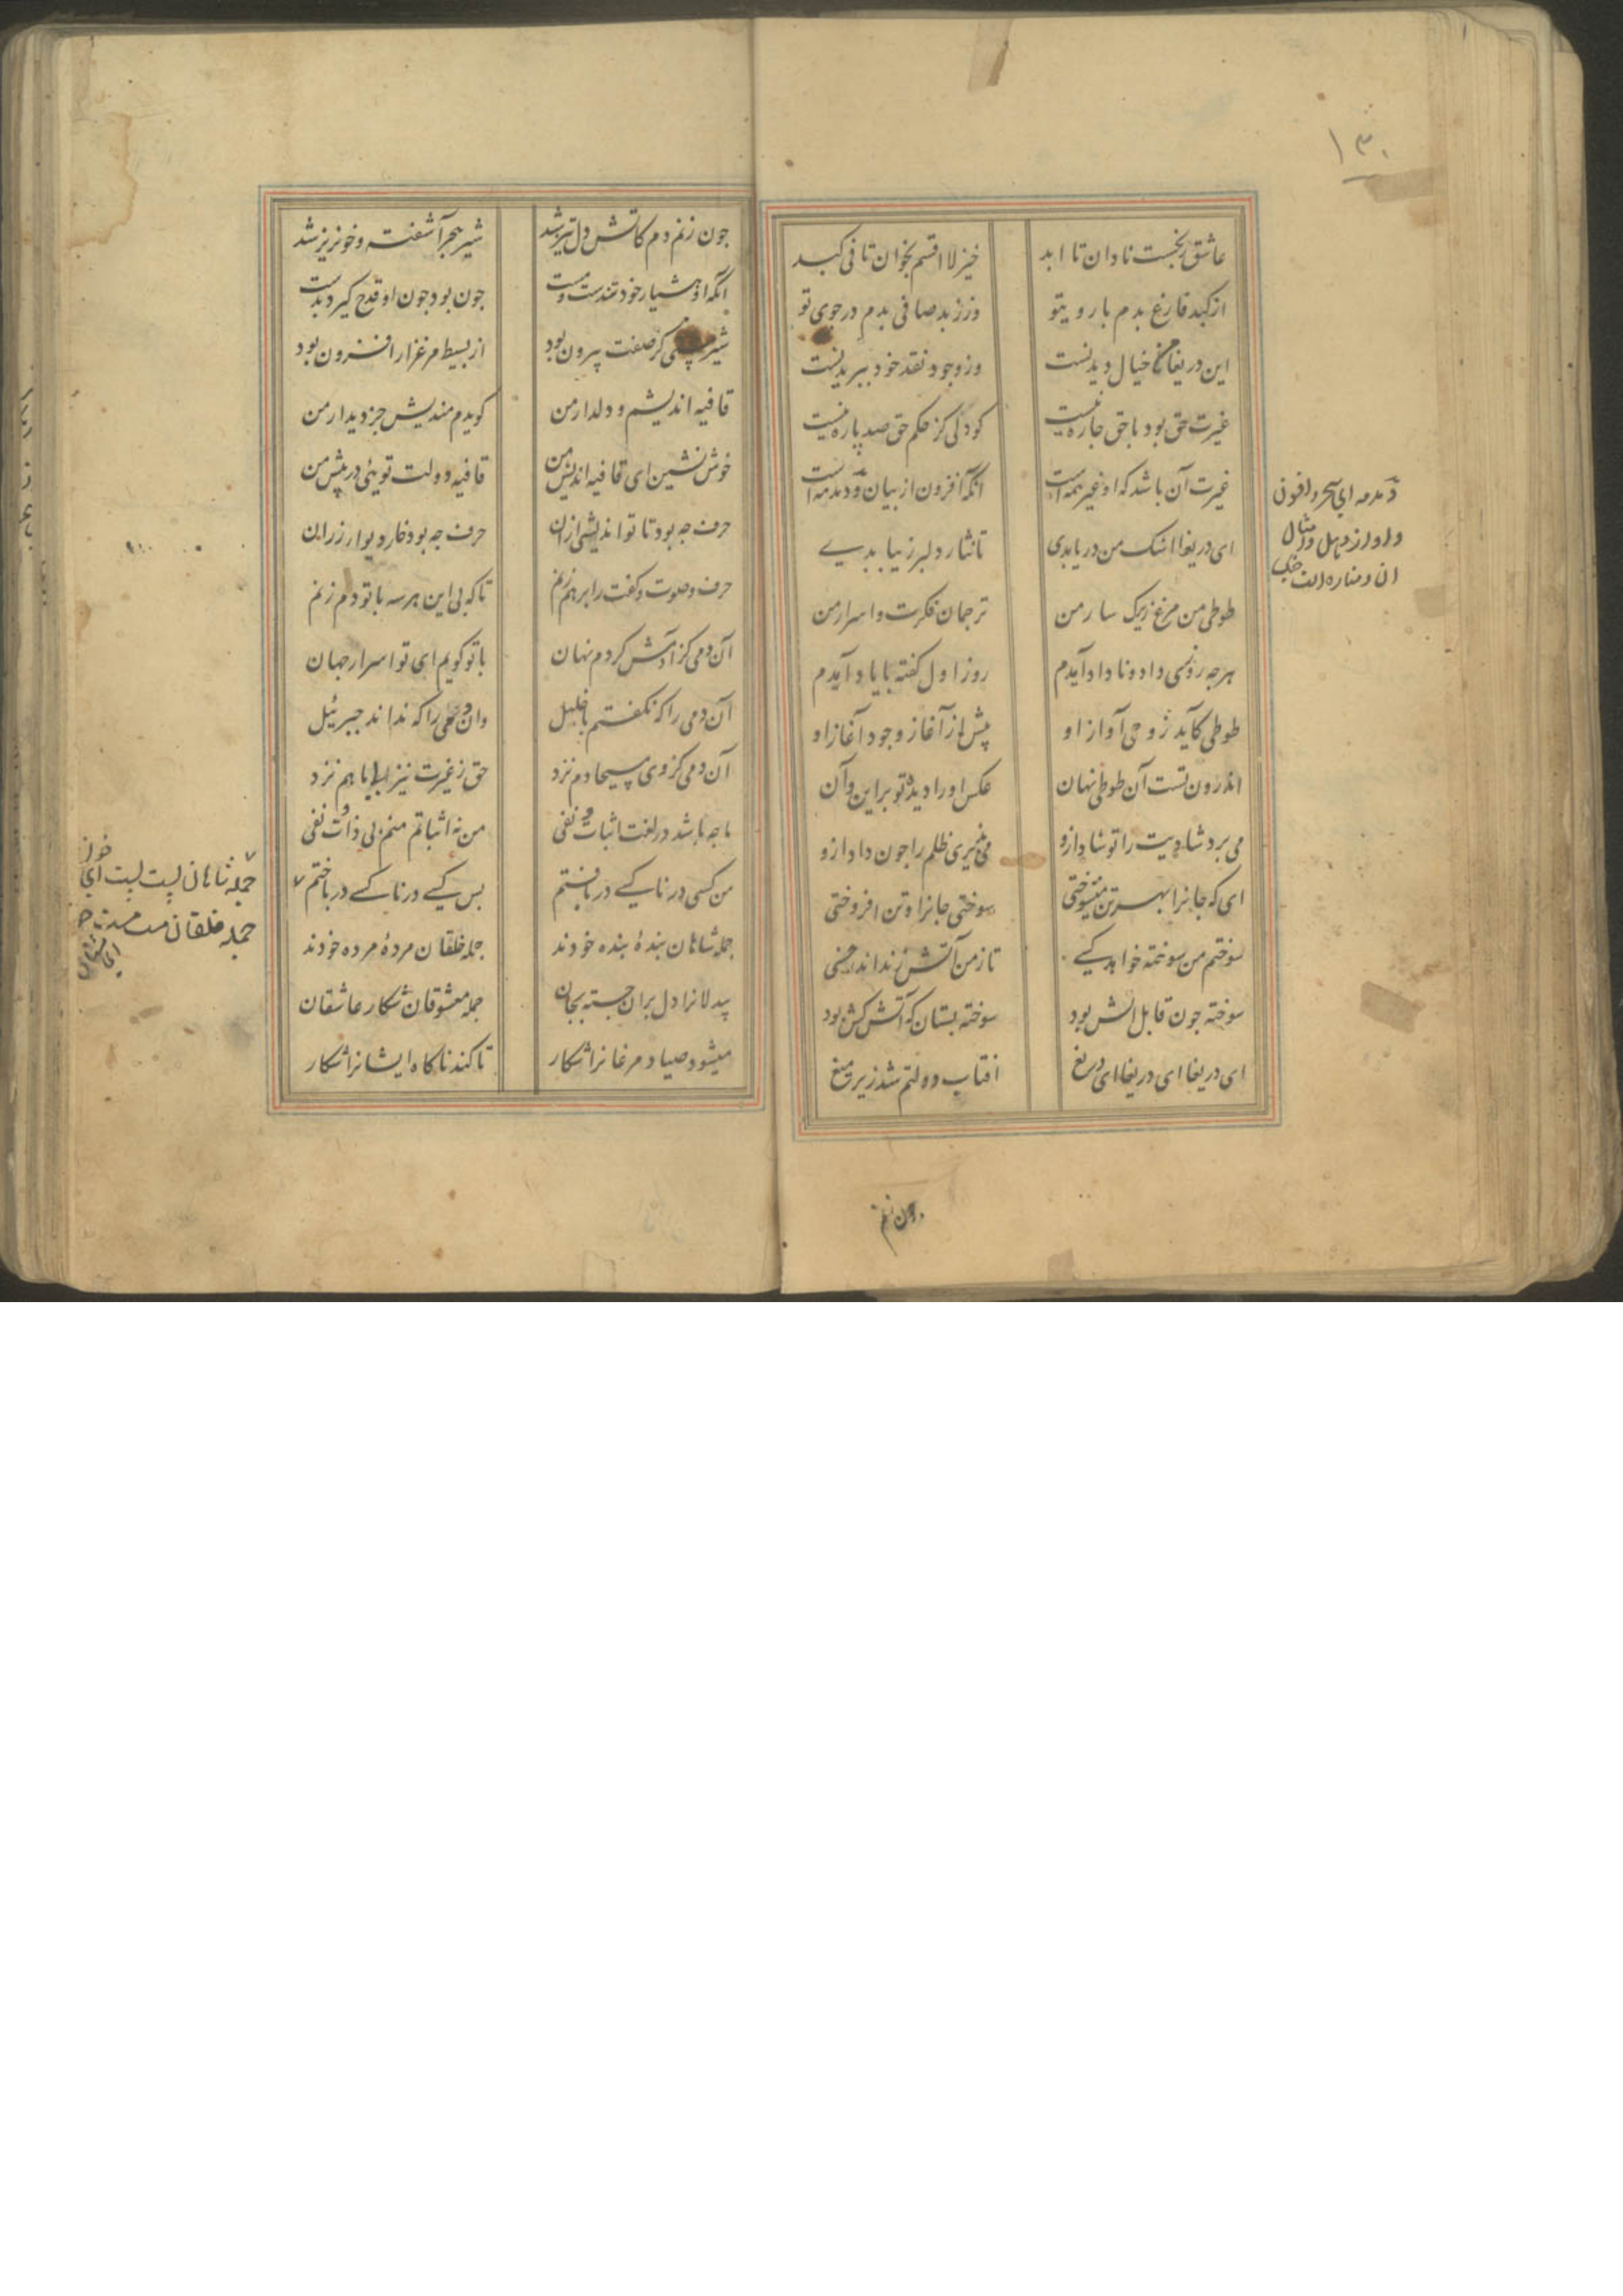 ۱۳۰
عاشق رنجست نادان تا ابد خیز لا اقسم بخوان تا فی کبد
از کبد فارغ بدم با روی تو وز زبد صافی بدم در جوی تو
این دریغاها خیال دیدنست وز وجود نقد خود ببریدنست
غیرت حق بود با حق چاره نیست کو دلی کز حکم حق صد پاره نیست
غیرت آن باشد که او غیر همه است انکه افزون از بیان و دمدمه است
ای دریغا اشک من دریا بدی تا نثار دلبر زیبا بدی
طوطی من مرغ زیرک سار من ترجمان فکرت و اسرار من
هرجه روزی داد و ناداد آیدم روز اول گفته با یاد آیدم
طوطی کآید ز وحی آواز او پیش از آغاز وجود آغاز او
اندرون تست آن طوطی نهان عکس او را دیده تو بر این و آن
می برد شادیت را تو شاد ازو می پذیری ظلم را جون داد ازو
ای که جانرا بهر تن میسوختی سوختی جانرا و تن افروختی
سوختم من سوخته خواهد کسی تا زمن آتش زند اندر خسی
سوخته جون قابل اتش بود سوخته بستان که آتش کش بود
ای دریغا ای دریغا ای دریغ افتاب دولتم شد زیر میغ
دمدمه ای سحر و افون
و اواز دهل و امثال
جون زنم
جون زنم دم کاتش دل تیز شد شیر هجر آشفته و خونریز شد
انکه او هشیار خود تندست و مست جون بود جون او قدح کیرد بدست
شیر مستی کز صفت بیرون بود از بسیط مرغزار افزون بود
قافیه اندیشم و دلدار من کویدم مندیش جز دیدار من
خوش نشین ای قافیه اندیش من قافیه دولت تویئی در پیش من
حرف جه بود تا تو اندیشی ازان حرف جه بود خار دیوار رزان
حرف و صوت و گفت را برهم زنم تا که بی این هر سه با تو دم زنم
آن دمی کز آدمش کردم نهان با تو کویم ای تو اسرار جهان
آن دمی را که نکفتم با خلیل وان دمی را که نداند جبرئیل
آن دمی کز وی مسیحا دم نزد حق ز غیرت نیز بی ما هم نزد
ما جه باشد در لغت اثبات و نفی من نه اثباتم منم بی ذات و نفی
من کسی در ناکسی دریافتم بس کسی در ناکسی درباختم
جمله شاهان بندهٔ بنده خودند جمله خلقان مردهٔ مرده خودند
بیدلانرا دلبران جسته بجان جمله معشوقان شکار عاشقان
میشود صیاد مرغانرا شکار تا کند ناکاه ایشانرا شکار
جمله شاهان پست پست
خویش
جمله خلقان مست مست